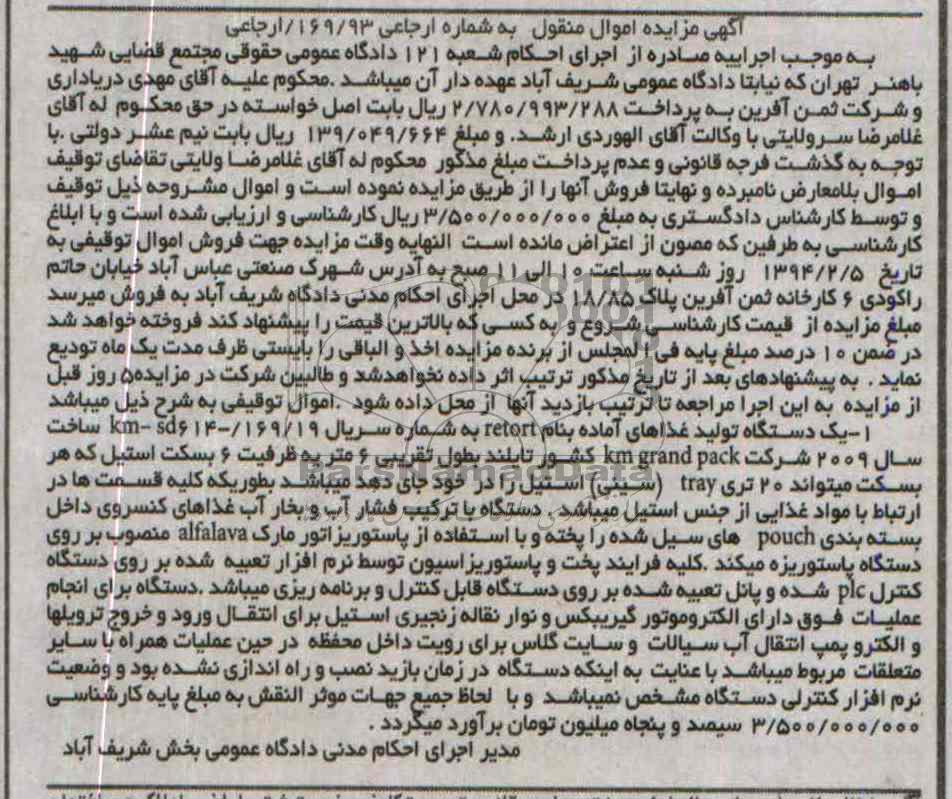 آگهی مزایده اموال منقول به شماره ارجاعی ۱۶۹/۹۳/ارجاعی
به موجب اجراییه صادره از اجرای احکام شعبه ۱۲۱ دادگاه عمومی حقوقی مجتمع قضایی شهید
باهنر تهران که نیابتا دادگاه عمومی شریف آباد عهده دار آن میباشد .محکوم علیه آقای مهدی دریاداری
و شرکت ثمن آفرین به پرداخت ۲/۷۸۰/۹۹۳/۲۸۸ ریال بابت اصل خواسته در حق محکوم له آقای
غلامرضا سرولایتی با وکالت آقای الهوردی ارشد. و مبلغ ۱۳۹/۰۴۹/۶۶۴ ریال بابت نیم عشر دولتی .با
توجه به گذشت فرجه قانونی و عدم پرداخت مبلغ مذکور محکوم له آقای غلامرضا ولایتی تقاضای توقیف
اموال بلامعارض نامبرده و نهایتا فروش آنها را از طریق مزایده نموده است و اموال مشروحه ذیل توقیف
و توسط کارشناس دادگستری به مبلغ ۳/۵۰۰/۰۰۰/۰۰۰ ریال کارشناسی و ارزیابی شده است و با ابلاغ
کارشناسی به طرفین که مصون از اعتراض مانده است النهایه وقت مزایده جهت فروش اموال توقیفی به
تاریخ ۱۳۹۴/۲/۵ روز شنبه ساعت ۱۰ الی ۱۱ صبح به آدرس شهرک صنعتی عباس آباد خیابان حاتم
راکودی ۶ کارخانه ثمن آفرین پلاک ۱۸/۸۵ در محل اجرای احکام مدنی دادگاه شریف آباد به فروش میرسد
مبلغ مزایده از قیمت کارشناسی شروع و به کسی که بالاترین قیمت را پیشنهاد کند فروخته خواهد شد
در ضمن ۱۰ درصد مبلغ پایه فی المجلس از برنده مزایده اخذ و الباقی را بایستی ظرف مدت یک ماه تودیع
نماید . به پیشنهادهای بعد از تاریخ مذکور ترتیب اثر داده نخواهدشد و طالبین شرکت در مزایده۵ روز قبل
از مزایده به این اجرا مراجعه تا ترتیب بازدید آنها از محل داده شود .اموال توقیفی به شرح ذیل میباشد
۱-یک دستگاه تولید غذاهای آماده بنام retort به شماره سریال km- sd۶۱۴-/۱۶۹/۱۹ ساخت
سال ۲۰۰۹ شرکت km grand pack کشور تایلند بطول تقریبی ۶ متر به ظرفیت ۶ بسکت استیل که هر
بسکت میتواند ۲۰ تری tray (سینی) استیل را در خود جای دهد میباشد بطوریکه کلیه قسمت ها در
ارتباط با مواد غذایی از جنس استیل میباشد . دستگاه با ترکیب فشار آب و بخار آب غذاهای کنسروی داخل
بسته بندی pouch های سیل شده را پخته و با استفاده از پاستوریزاتور مارک alfalava منصوب بر روی
دستگاه پاستوریزه میکند .کلیه فرایند پخت و پاستوریزاسیون توسط نرم افزار تعبیه شده بر روی دستگاه
کنترل plc شده و پانل تعبیه شده بر روی دستگاه قابل کنترل و برنامه ریزی میباشد .دستگاه برای انجام
عملیات فوق دارای الکتروموتور گیربکس و نوار نقاله زنجیری استیل برای انتقال ورود و خروج ترویلها
و الکترو پمپ انتقال آب سیالات و سایت گلاس برای رویت داخل محفظه در حین عملیات همراه با سایر
متعلقات مربوط میباشد با عنایت به اینکه دستگاه در زمان بازید نصب و راه اندازی نشده بود و وضعیت
نرم افزار کنترلی دستگاه مشخص نمیباشد و با لحاظ جمیع جهات موثر النقش به مبلغ پایه کارشناسی
۳/۵۰۰/۰۰۰/۰۰۰ سیصد و پنجاه میلیون تومان برآورد میگردد .
مدیر اجرای احکام مدنی دادگاه عمومی بخش شریف آباد